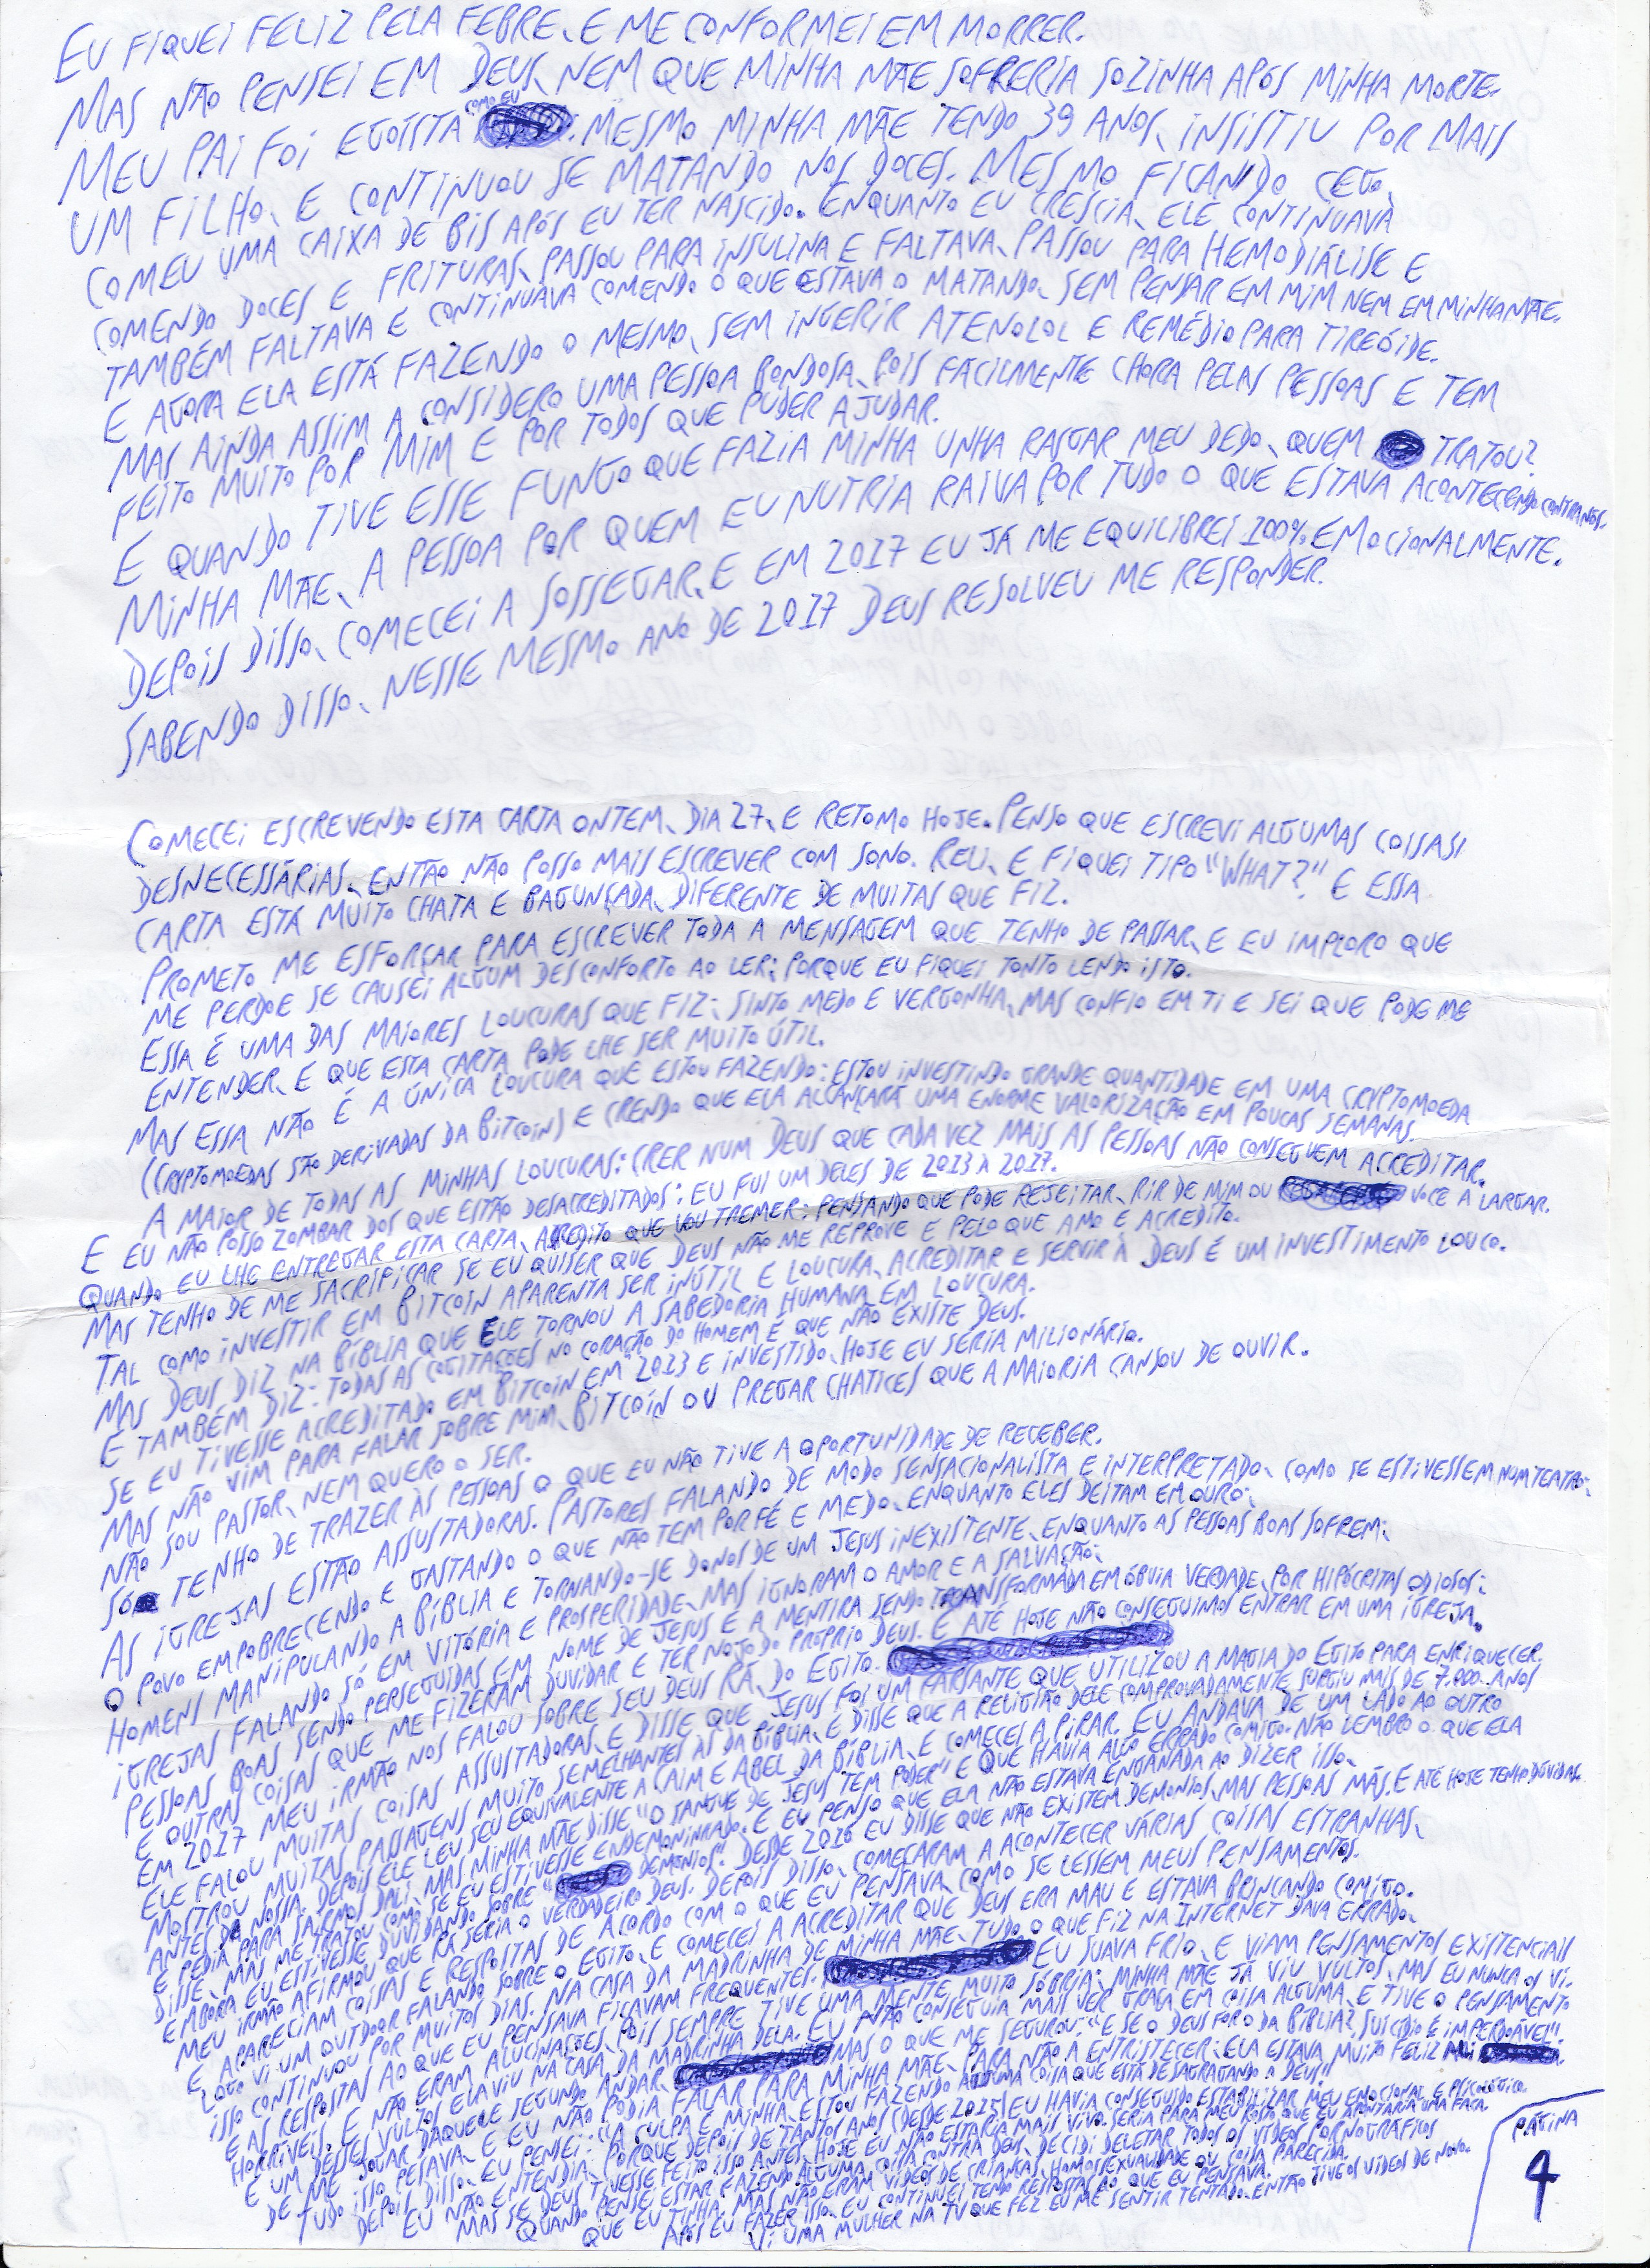 EU FIQUEI FELIZ PELA FEBRE, E ME CONFORMEI EM MORRER.
MAS NÃO PENSEI EM DEUS, NEM QUE MINHA MÃE SOFRERIA SOZINHA APÓS MINHA MORTE.
MEU PAI FOI EGOÍSTA COMO EU. MESMO MINHA MÃE TENDO 39 ANOS, INSISTIU POR MAIS
UM FILHO, E CONTINUOU SE MATANDO NOS DOCES. MESMO FICANDO CEGO,
COMEU UMA CAIXA DE BIS APÓS EU TER NASCIDO. ENQUANTO EU CRESCIA, ELE CONTINUAVA
COMENDO DOCES E FRITURAS, PASSOU PARA INSULINA E FALTAVA, PASSOU PARA HEMODIÁLISE E
TAMBÉM FALTAVA E CONTINUAVA COMENDO O QUE ESTAVA O MATANDO, SEM PENSAR EM MIM NEM EM MINHA MÃE.
E AGORA ELA ESTÁ FAZENDO O MESMO, SEM INGERIR ATENOLOL E REMÉDIO PARA TIREÓIDE.
MAS AINDA ASSIM A CONSIDERO UMA PESSOA BONDOSA, POIS FACILMENTE CHORA PELAS PESSOAS E TEM
FEITO MUITO POR MIM E POR TODOS QUE PUDER AJUDAR.
E QUANDO TIVE ESSE FUNGO QUE FAZIA MINHA UNHA RASGAR MEU DEDO, QUEM TRATOU?
MINHA MÃE, A PESSOA POR QUEM EU NUTRIA RAIVA POR TUDO O QUE ESTAVA ACONTECENDO CONTRA NÓS.
DEPOIS DISSO, COMECEI A SOSSEGAR, E EM 2017 EU JÁ ME EQUILIBREI 100% EMOCIONALMENTE.
SABENDO DISSO, NESSE MESMO ANO DE 2017 DEUS RESOLVEU ME RESPONDER.
COMECEI ESCREVENDO ESTA CARTA ONTEM, DIA 27, E RETOMO HOJE. PENSO QUE ESCREVI ALGUMAS COISAS
DESNECESSÁRIAS, ENTÃO NÃO POSSO MAIS ESCREVER COM SONO. RELI, E FIQUEI TIPO "WHAT?" E ESSA
CARTA ESTÁ MUITO CHATA E BAGUNÇADA, DIFERENTE DE MUITAS QUE FIZ.
PROMETO ME ESFORÇAR PARA ESCREVER TODA A MENSAGEM QUE TENHO DE PASSAR, E EU IMPLORO QUE
ME PERDOE SE CAUSEI ALGUM DESCONFORTO AO LER; PORQUE EU FIQUEI TONTO LENDO ISTO.
ESSA É UMA DAS MAIORES LOUCURAS QUE FIZ: SINTO MEDO E VERGONHA, MAS CONFIO EM TI E SEI QUE PODE ME
ENTENDER, E QUE ESTA CARTA PODE LHE SER MUITO ÚTIL.
MAS ESSA NÃO É A ÚNICA LOUCURA QUE ESTOU FAZENDO: ESTOU INVESTINDO GRANDE QUANTIDADE EM UMA CRYPTOMOEDA
(CRYPTOMOEDAS SÃO DERIVADAS DA BITCOIN) E CRENDO QUE ELA ALCANÇARÁ UMA ENORME VALORIZAÇÃO EM POUCAS SEMANAS.
A MAIOR DE TODAS AS MINHAS LOUCURAS: CRER NUM DEUS QUE CADA VEZ MAIS AS PESSOAS NÃO CONSEGUEM ACREDITAR.
E EU NÃO POSSO ZOMBAR DOS QUE ESTÃO DESACREDITADOS: EU FUI UM DELES DE 2013 À 2017.
QUANDO EU LHE ENTREGAR ESTA CARTA, ACREDITO QUE VOU TREMER: PENSANDO QUE PODE REJEITAR, RIR DE MIM OU VOCÊ A LARGAR.
MAS TENHO DE ME SACRIFICAR SE EU QUISER QUE DEUS NÃO ME REPROVE E PELO QUE AMO E ACREDITO.
TAL COMO INVESTIR EM BITCOIN APARENTA SER INÚTIL E LOUCURA, ACREDITAR E SERVIR À DEUS É UM INVESTIMENTO LOUCO.
MAS DEUS DIZ NA BÍBLIA QUE ELE TORNOU A SABEDORIA HUMANA EM LOUCURA.
E TAMBÉM DIZ: TODAS AS COGITAÇÕES NO CORAÇÃO DO HOMEM É QUE NÃO EXISTE DEUS.
SE EU TIVESSE ACREDITADO EM BITCOIN EM 2013 E INVESTIDO, HOJE EU SERIA MILIONÁRIO.
MAS NÃO VIM PARA FALAR SOBRE MIM, BITCOIN OU PREGAR CHATICES QUE A MAIORIA CANSOU DE OUVIR.
NÃO SOU PASTOR, NEM QUERO O SER.
SÓ TENHO DE TRAZER ÀS PESSOAS O QUE EU NÃO TIVE A OPORTUNIDADE DE RECEBER.
AS IGREJAS ESTÃO ASSUSTADORAS. PASTORES FALANDO DE MODO SENSACIONALISTA E INTERPRETADO, COMO SE ESTIVESSEM NUM TEATRO;
O POVO EMPOBRECENDO E GASTANDO O QUE NÃO TEM POR FÉ E MEDO, ENQUANTO ELES DEITAM EM OURO;
HOMENS MANIPULANDO A BÍBLIA E TORNANDO-SE DONOS DE UM JESUS INEXISTENTE, ENQUANTO AS PESSOAS BOAS SOFREM;
IGREJAS FALANDO SÓ EM VITÓRIA E PROSPERIDADE, MAS IGNORAM O AMOR E A SALVAÇÃO;
PESSOAS BOAS SENDO PERSEGUIDAS EM NOME DE JESUS E A MENTIRA SENDO TRANSFORMADA EM ÓBVIA VERDADE, POR HIPÓCRITAS ODIOSOS;
E OUTRAS COISAS QUE ME FIZERAM DUVIDAR E TER NOJO DO PRÓPRIO DEUS. E ATÉ HOJE NÃO CONSEGUIMOS ENTRAR EM UMA IGREJA.
EM 2017 MEU IRMÃO NOS FALOU SOBRE SEU DEUS RÁ, DO EGITO.
ELE FALOU MUITAS COISAS ASSUSTADORAS, E DISSE QUE JESUS FOI UM FARSANTE QUE UTILIZOU A MAGIA DO EGITO PARA ENRIQUECER.
MOSTROU MUITAS PASSAGENS MUITO SEMELHANTES ÀS DA BÍBLIA, E DISSE QUE A RELIGIÃO DELE COMPROVADAMENTE SURGIU MAIS DE 7.000 ANOS
ANTES DA NOSSA. DEPOIS ELE LEU SEU EQUIVALENTE A CAIM E ABEL DA BÍBLIA, E COMECEI A PIRAR. EU ANDAVA DE UM LADO AO OUTRO
E PEDIA PARA SAIRMOS DALI, MAS MINHA MÃE DISSE "O SANGUE DE JESUS TEM PODER" E QUE HAVIA ALGO ERRADO COMIGO. NÃO LEMBRO O QUE ELA
DISSE, MAS ME TRATOU COMO SE EU ESTIVESSE ENDEMONINHADO. E EU PENSO QUE ELA NÃO ESTAVA ENGANADA AO DIZER ISSO,
EMBORA EU ESTIVESSE DUVIDANDO SOBRE "DEMÔNIOS". DESDE 2016 EU DISSE QUE NÃO EXISTEM DEMÔNIOS, MAS PESSOAS MÁS. E ATÉ HOJE TENHO DÚVIDAS.
MEU IRMÃO AFIRMOU QUE RÁ SERIA O VERDADEIRO DEUS. DEPOIS DISSO, COMEÇARAM A ACONTECER VÁRIAS COISAS ESTRANHAS,
E APARECIAM COISAS E RESPOSTAS DE ACORDO COM O QUE EU PENSAVA, COMO SE LESSEM MEUS PENSAMENTOS.
LOGO VI UM OUTDOOR FALANDO SOBRE O EGITO, E COMECEI A ACREDITAR QUE DEUS ERA MAU E ESTAVA BRINCANDO COMIGO.
ISSO CONTINUOU POR MUITOS DIAS. NA CASA DA MADRINHA DE MINHA MÃE, TUDO O QUE FIZ NA INTERNET DAVA ERRADO,
E AS RESPOSTAS AO QUE EU PENSAVA FICAVAM FREQUENTES. EU SUAVA FRIO, E VIAM PENSAMENTOS EXISTENCIAIS
HORRÍVEIS. E NÃO ERAM ALUCINAÇÕES, POIS SEMPRE TIVE UMA MENTE MUITO SÓBRIA; MINHA MÃE JÁ VIU VULTOS, MAS EU NUNCA OS VI.
E UM DESSES VULTOS ELA VIU NA CASA DA MADRINHA DELA. EU NÃO CONSEGUIA MAIS VER GRAÇA EM COISA ALGUMA, E TIVE O PENSAMENTO
DE ME JOGAR DAQUELE SEGUNDO ANDAR, MAS O QUE ME SEGUROU: "E SE O DEUS FOR O DA BÍBLIA? SUICÍDIO É IMPERDOÁVEL".
TUDO ISSO PESAVA, E EU NÃO PODIA FALAR PARA MINHA MÃE, PARA NÃO A ENTRISTECER; ELA ESTAVA MUITO FELIZ ALI.
DEPOIS DISSO, EU PENSEI: "A CULPA É MINHA, ESTOU FAZENDO ALGUMA COISA QUE ESTÁ DESAGRADANDO A DEUS!"
EU NÃO ENTENDIA, PORQUE DEPOIS DE TANTOS ANOS (DESDE 2015) EU HAVIA CONSEGUIDO ESTABILIZAR MEU EMOCIONAL E PSICOLÓGICO.
MAS SE DEUS TIVESSE FEITO ISSO ANTES, HOJE EU NÃO ESTARIA MAIS VIVO. SERIA PARA MEU ROSTO QUE EU APONTARIA UMA FACA.
QUANDO PENSEI ESTAR FAZENDO ALGUMA COISA CONTRA DEUS, DECIDI DELETAR TODOS OS VÍDEOS PORNOGRÁFICOS
QUE EU TINHA, MAS NÃO ERAM VÍDEOS DE CRIANÇAS, HOMOSSEXUALIDADE OU COISA PARECIDA.
APÓS EU FAZER ISSO, EU CONTINUEI TENDO RESPOSTAS AO QUE EU PENSAVA.
VI UMA MULHER NA TV QUE FEZ EU ME SENTIR TENTADO. ENTÃO TIVE OS VÍDEOS DE NOVO.
PÁGINA
4